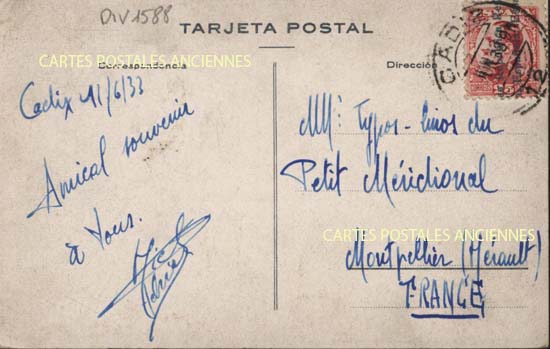 DIV1588
TARJETA POSTAL
CARTES POSTALES ANCIENNES
Correspondencia
Dirección
CADIZ
Cadix 4/6/33
Amical souvenir
à tous.
MM: Typos-linos du
Petit Méridional
CARTES POSTALES ANCIENNES
Montpellier (Hérault)
FRANCE